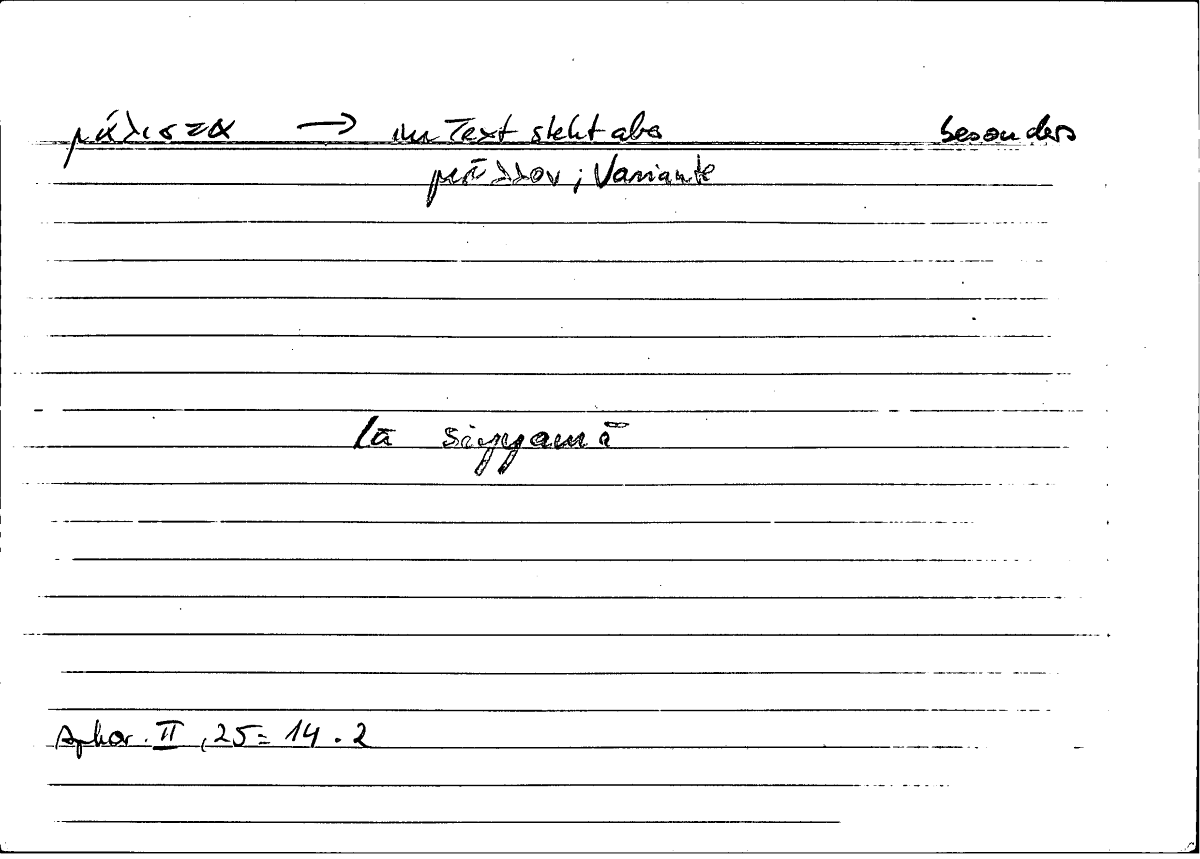 μάλιστα → im Text steht aber besonders
μᾶλλον ; Variante
lā siyyamā
Aphor. II , 25 = 14 . 2